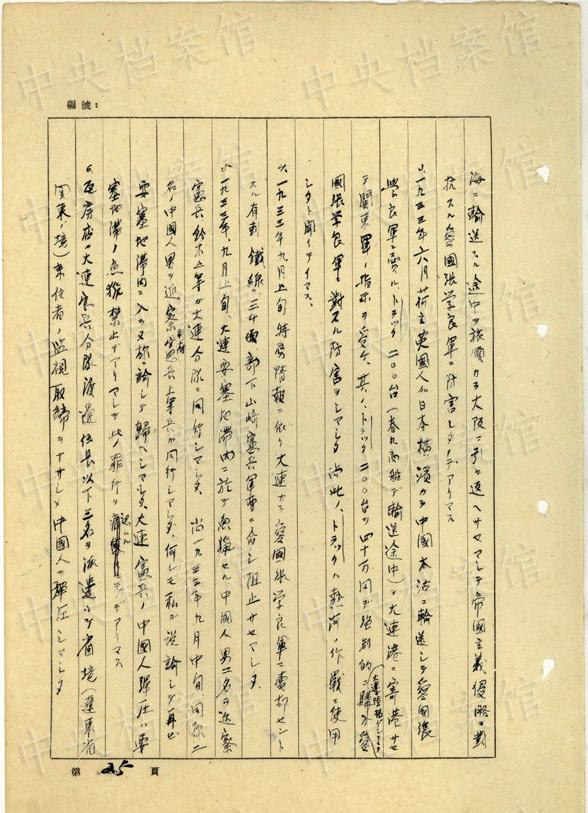 編號：
海ニ輸送スル途中ヲ旅順カラ大阪ニ引キ返ヘサセマシテ帝國主義侵略ニ對
抗スル愛國張学良軍ニ防害シタノデアリマス
一九三三年六月 荷主英國人ガ日本横濱カラ中國太沽ニ輸送シテ愛國張
学良軍ニ賣ルトラック二〇〇台（春丸商船デ輸送途中）ヲ大連港ニ寄港サセ
テ関東軍ノ指示ヲ受ケ、其ノトラック二〇〇台ヲ四十万円デ強制的ニ
國張学良軍ニ對スル防害ヲシマシタ 尚此ノトラックハ熱河ノ作戰ニ使用
シタト聞イテイマス。
一九三三年九月上旬特務情報ニ依リ大連カラ愛國張学良軍ニ賣却セント
スル有刺鐵線三十 部下山崎憲兵軍曹ニ命シ阻止サセマシタ
一九三三年、九月上旬、大連要塞地滞内ニ於テ魚撈セル中國人男二名ヲ巡察
憲兵鈴木上等ガ大連分隊ニ同行シマシタ、尚一九三三年九月中旬同ジク二
名ノ中國人男ヲ巡察憲兵上等兵ガ同行シマシタ、何レモ私ガ説諭シテ再ビ
要塞地滞内ニ入ラヌ様諭シテ歸ヘシマシタ、大連憲兵ノ中國人彈圧ハ要
塞地滞ノ魚撈禁止デアリマシテ此ノ罪行ヲ デアリマス
瓦房店ニ大連憲兵分隊渡邊伍長以下三名ヲ派遣シテ省境（遼東省
関東ノ境）来住者ノ監視取締ヲナサシメ中國人ヲ彈圧シマシタ
第 25 頁
中央档案馆